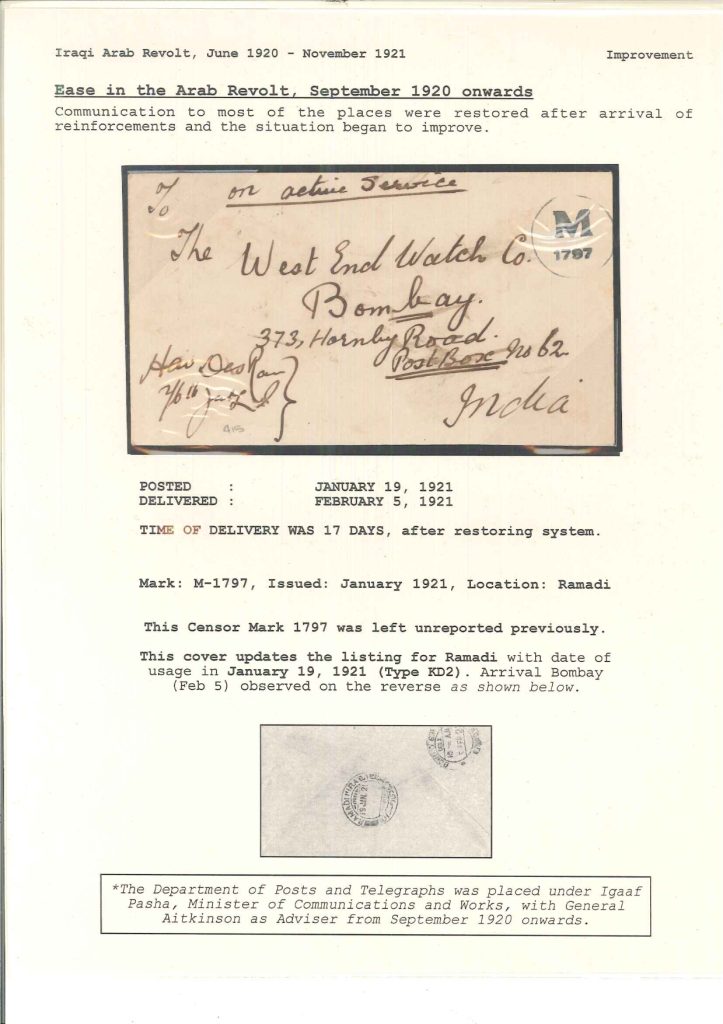 Iraqi Arab Revolt, June 1920 - November 1921 Improvement
Ease in the Arab Revolt, September 1920 onwards
Communication to most of the places were restored after arrival of
reinforcements and the situation began to improve.
To on active Service
M
1797
The West End Watch Co.
Bombay.
373, Hornby Road.
Post Box No 62
India
Hav Des Ram
2/6th Jat L.I.
415
POSTED : JANUARY 19, 1921
DELIVERED : FEBRUARY 5, 1921
TIME OF DELIVERY WAS 17 DAYS, after restoring system.
Mark: M-1797, Issued: January 1921, Location: Ramadi
This Censor Mark 1797 was left unreported previously.
This cover updates the listing for Ramadi with date of
usage in January 19, 1921 (Type KD2). Arrival Bombay
(Feb 5) observed on the reverse as shown below.
RAMADI
19 JAN 21
*The Department of Posts and Telegraphs was placed under Igaaf
Pasha, Minister of Communications and Works, with General
Aitkinson as Adviser from September 1920 onwards.